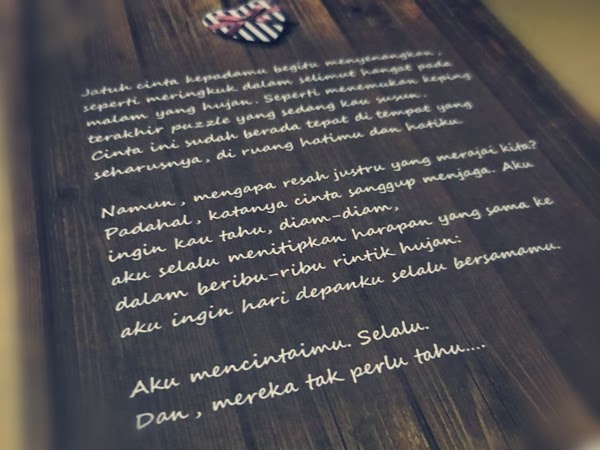 Jatuh cinta kepadamu begitu menyenangkan,
seperti meringkuk dalam selimut hangat pada
malam yang hujan. Seperti menemukan keping
terakhir puzzle yang sedang kau susun.
Cinta ini sudah berada tepat di tempat yang
seharusnya, di ruang hatimu dan hatiku.
Namun, mengapa resah justru yang merajai kita?
Padahal, katanya cinta sanggup menjaga. Aku
ingin kau tahu, diam-diam,
aku selalu menitipkan harapan yang sama ke
dalam beribu-ribu rintik hujan:
aku ingin hari depanku selalu bersamamu.
Aku mencintaimu. Selalu.
Dan, mereka tak perlu tahu....